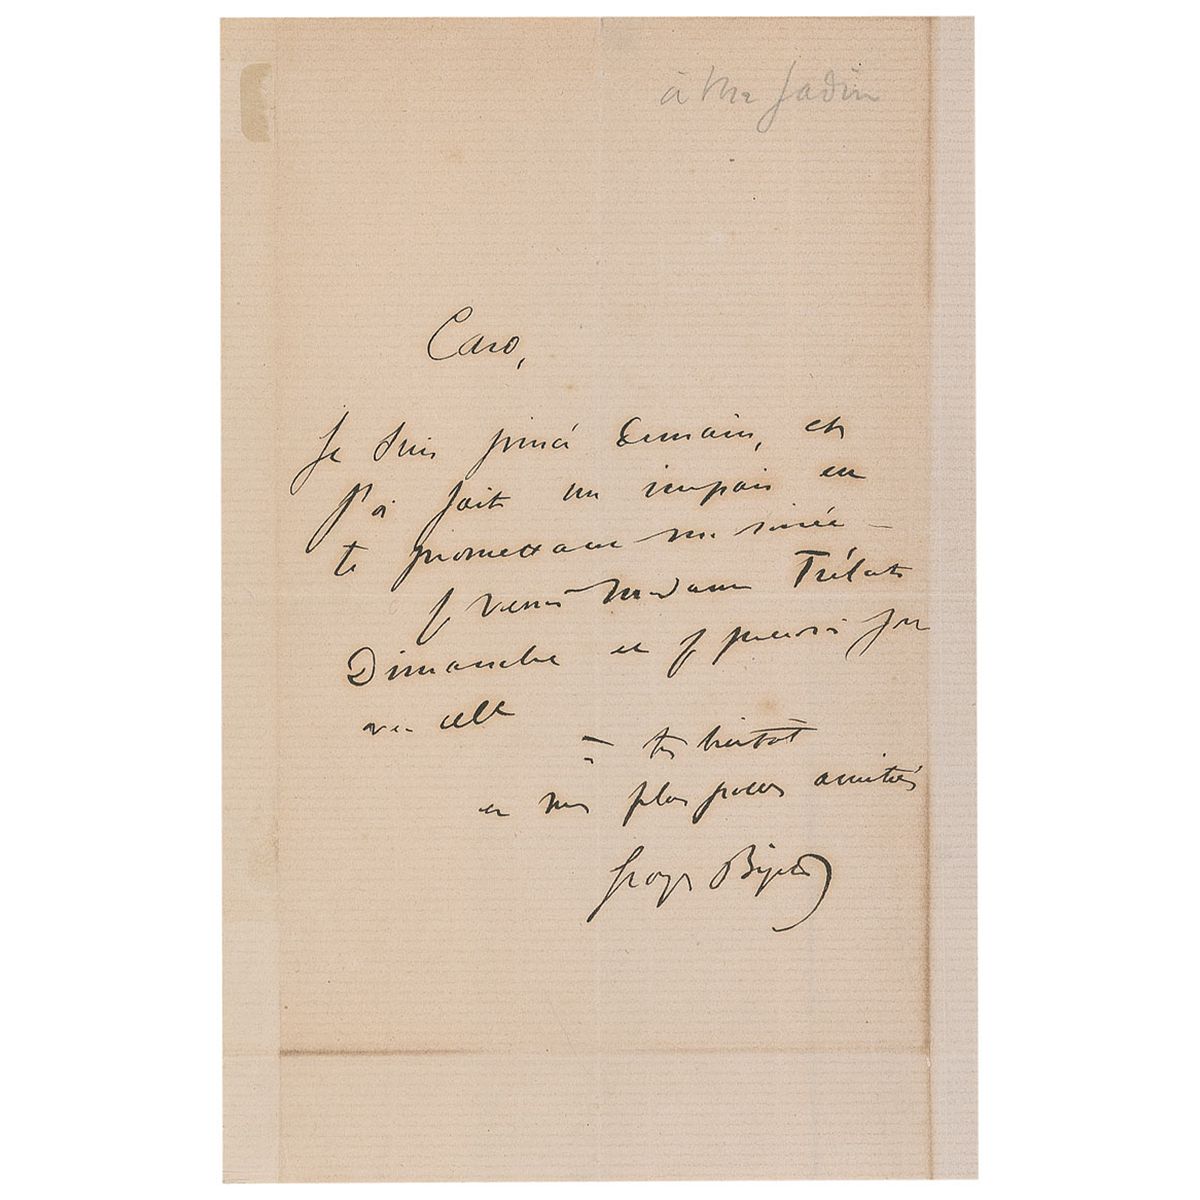 à Mr Jadin
Caro,
Je suis pincé demain, et
j'ai fait un impair en
te promettant ma soirée —
Je verrai Madame Trélat
Dimanche et je
à très bientôt
et mes plus amitiés
Georges Bizet